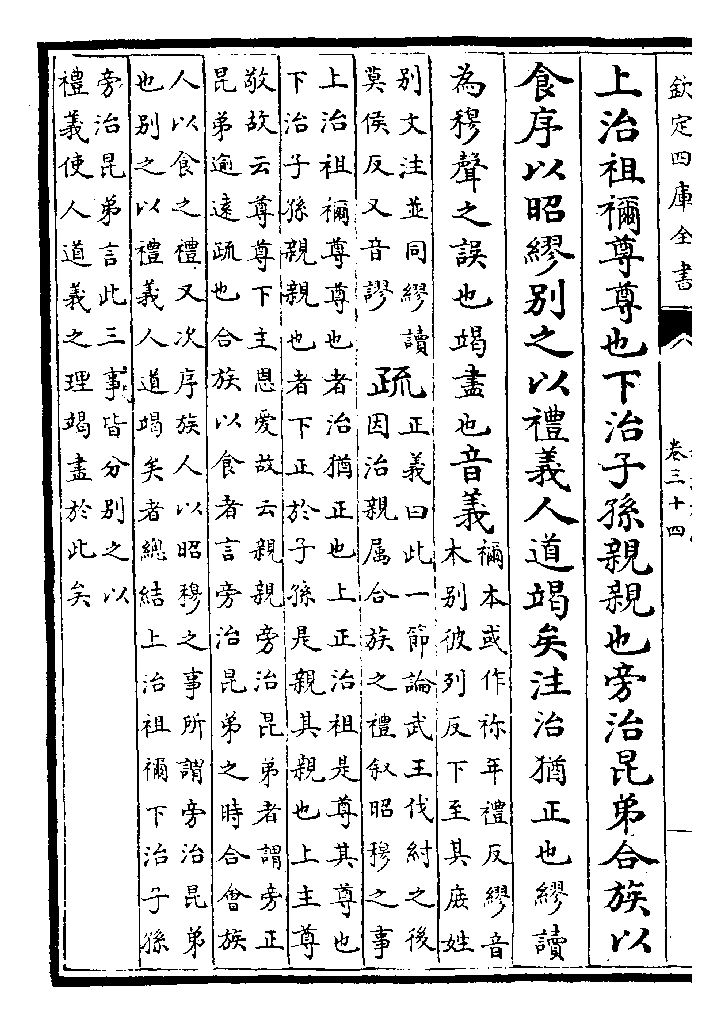 欽定四庫全書
卷三十四
上治祖禰尊尊也下治子孫親親也旁治昆弟合族以
食序以昭繆別之以禮義人道竭矣注治猶正也繆讀
為穆聲之誤也竭盡也音義
禰本或作祢年禮反繆音
本別彼列反下至其庶姓
別文注並同繆讀
莫侯反又音謬
疏
正義曰此一節論武王伐紂之後
因治親属合族之禮叙昭穆之事
上治祖禰尊尊也者治猶正也上正治祖是尊其尊也
下治子孫親親也者下正於子孫是親其親也上主尊
敬故云尊尊下主恩愛故云親親旁治昆弟者謂旁正
昆弟逾遠疏也合族以食者言旁治昆弟之時合會族
人以食之禮又次序族人以昭穆之事所謂旁治昆弟
也別之以禮義人道竭矣者總結上治祖禰下治子孫
旁治昆弟言此三事皆分別之以
禮義使人道義之理竭盡於此矣